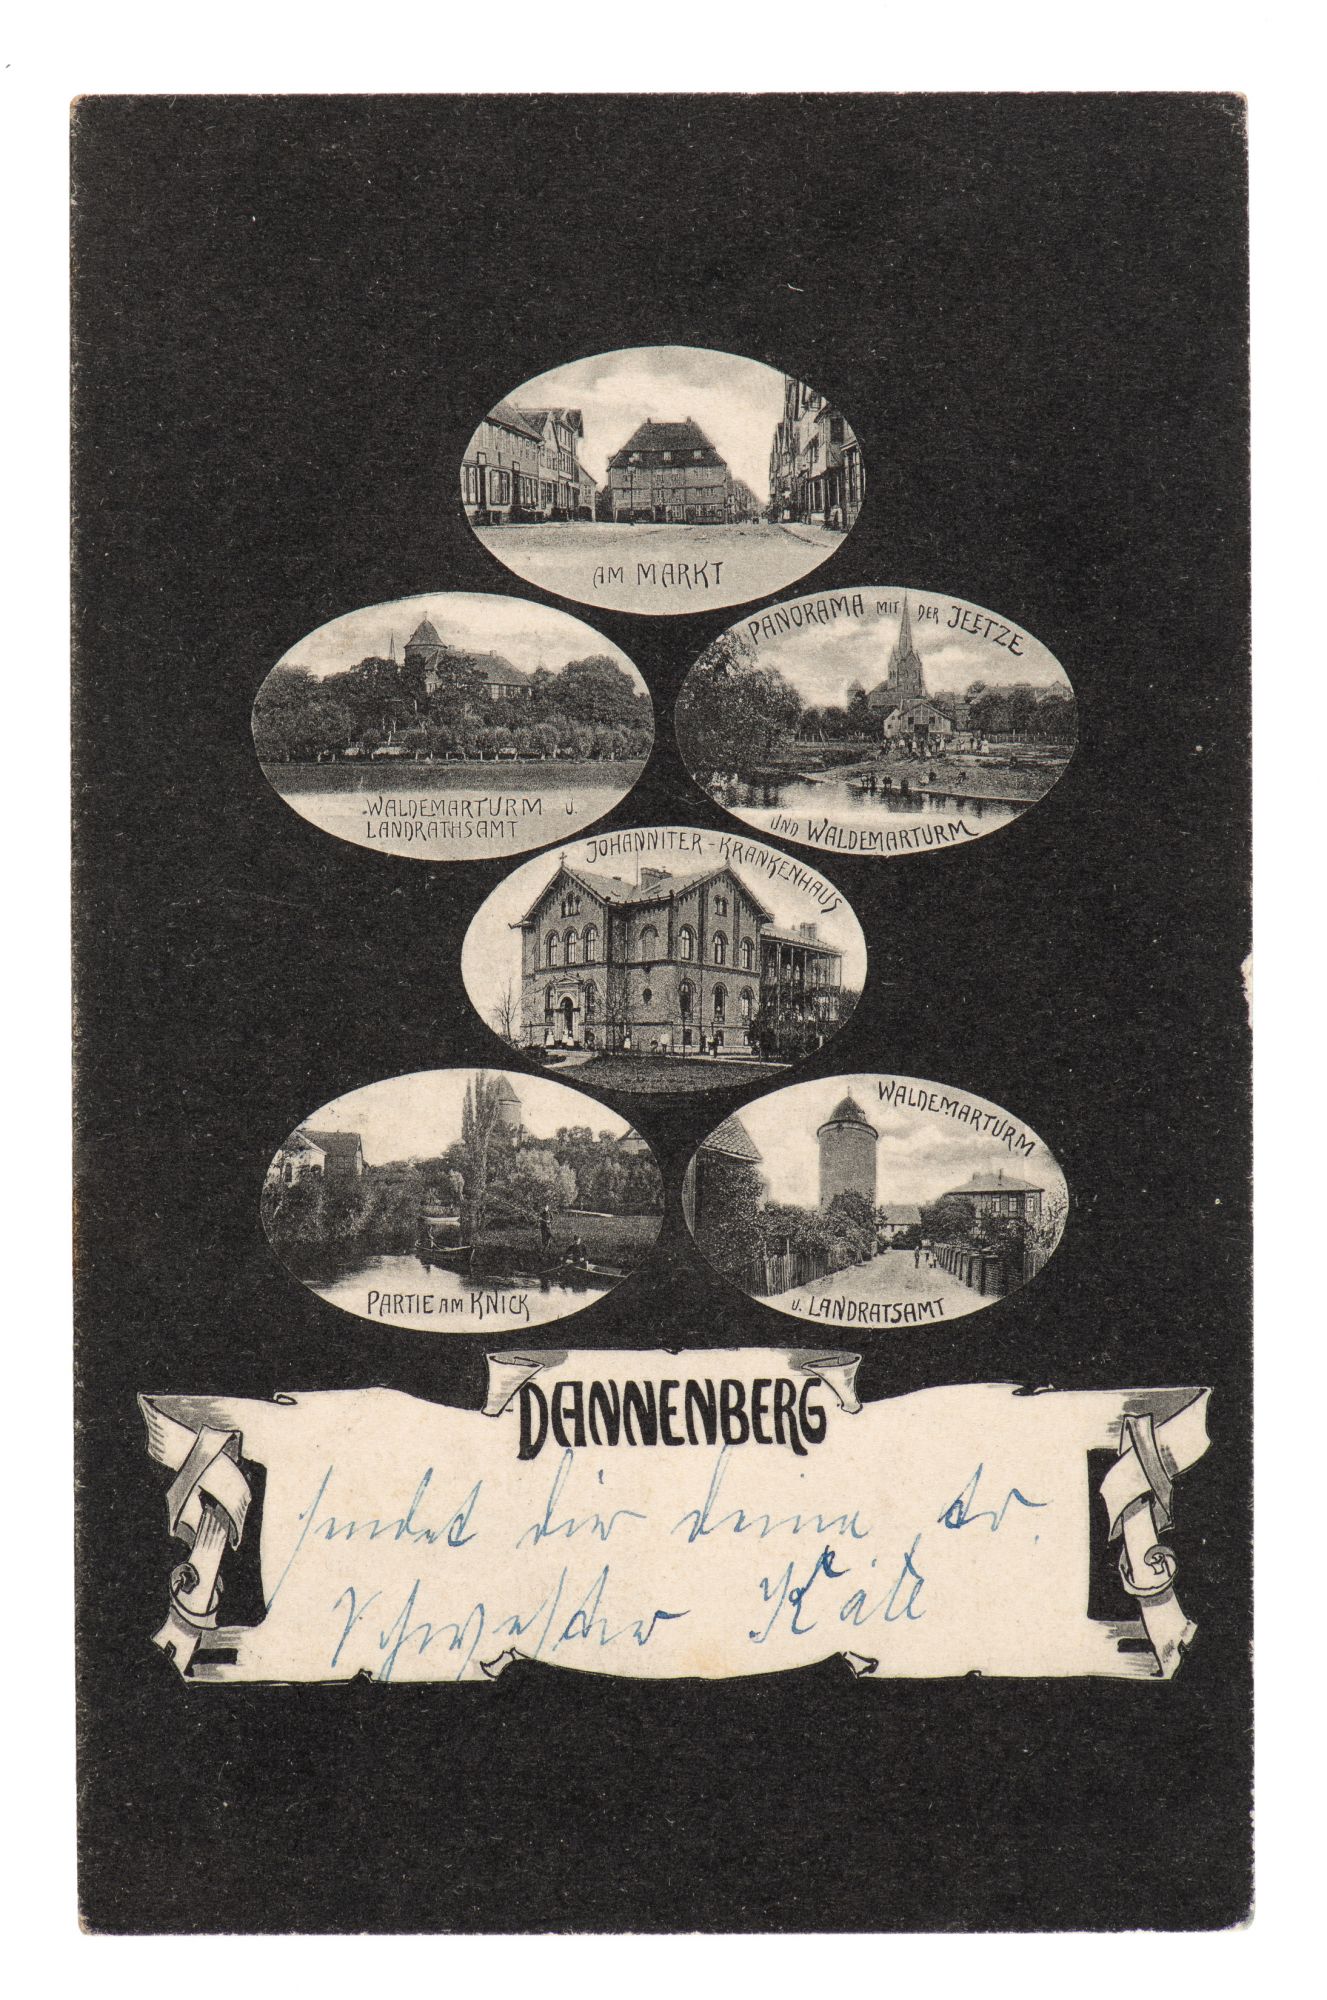 AM MARKT
WALDEMARTURM U.
LANDRATHSAMT
PANORAMA MIT DER JEETZE
UND WALDEMARTURM
JOHANNITER-KRANKENHAUS
PARTIE AM KNICK
WALDEMARTURM
U. LANDRATSAMT
DANNENBERG
sendet dir deine tr.
Schwester Käte